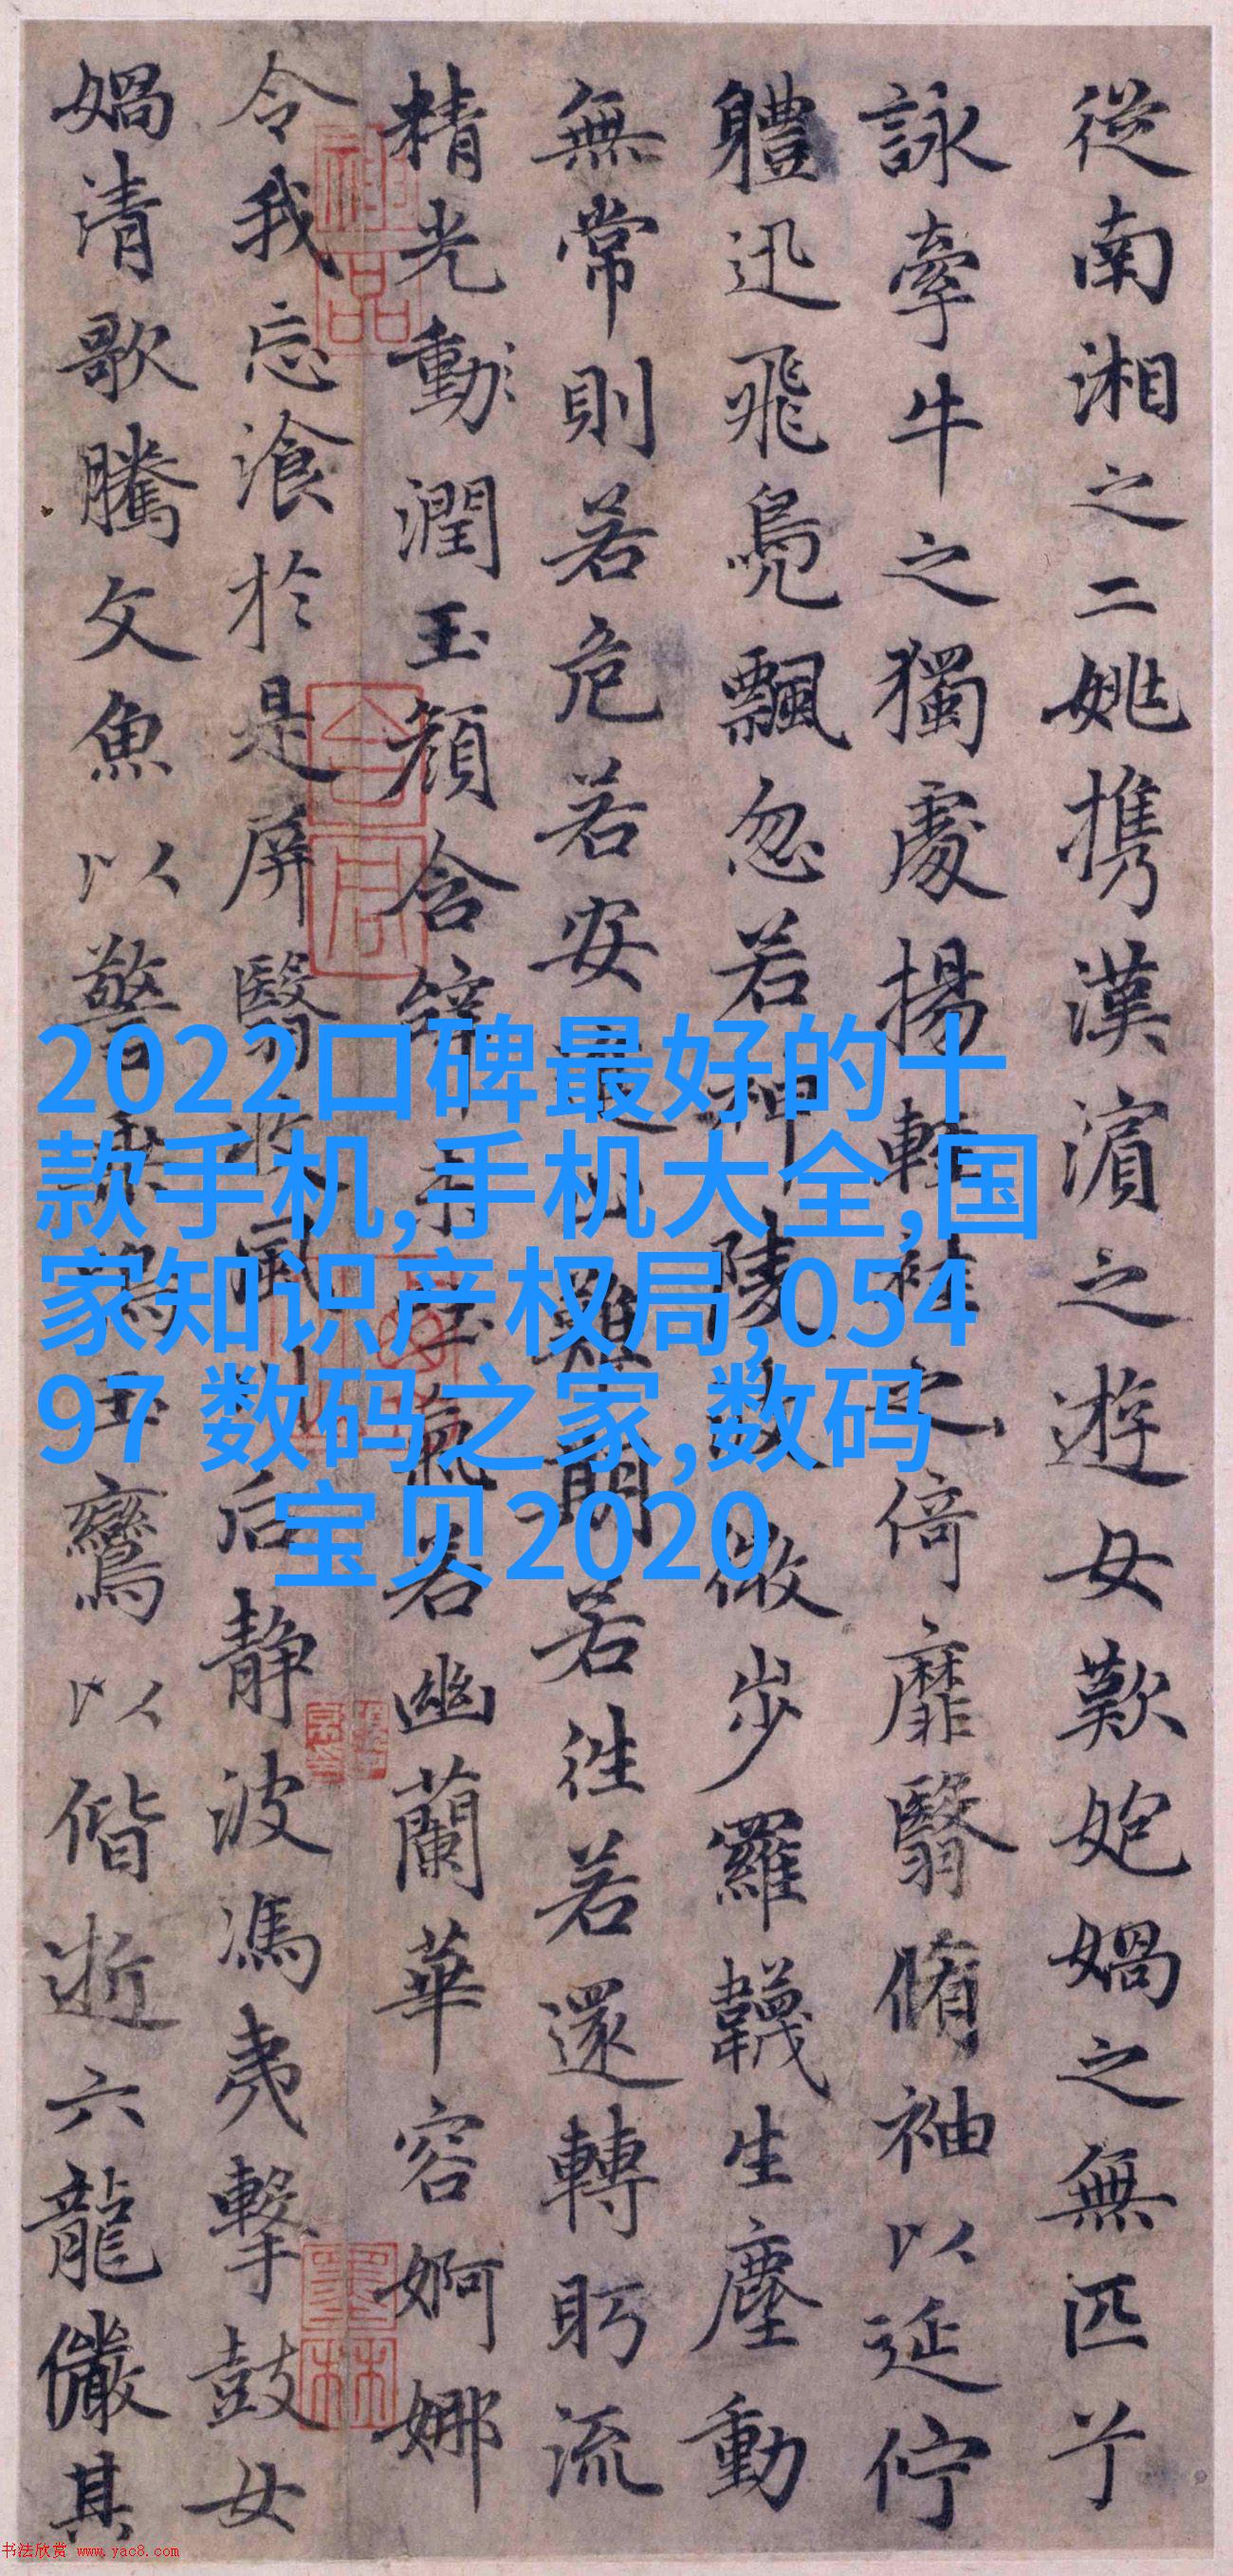 從南湘之二姚携漢濵之遊女歎媧之無匹兮
詠牽牛之獨處揚輕袿之倚靡翳脩袖以延佇
軆迅飛鳧飄忽若神陵波微步羅韈生塵動
無常則若危若安進止難期若往若還轉眄流
精光動潤玉顏含辭未吐氣若幽蘭華容婀娜
令我忘湌於是屏翳收風川后静波馮夷擊鼓女
媧清歌騰文魚以警乘鳴玉鸞以偕逝六龍儼其
2022口碑最好的十
款手机,手机大全,国
家知识产权局,054
97 数码之家,数码
宝贝2020
书法欣赏 www.yac8.com